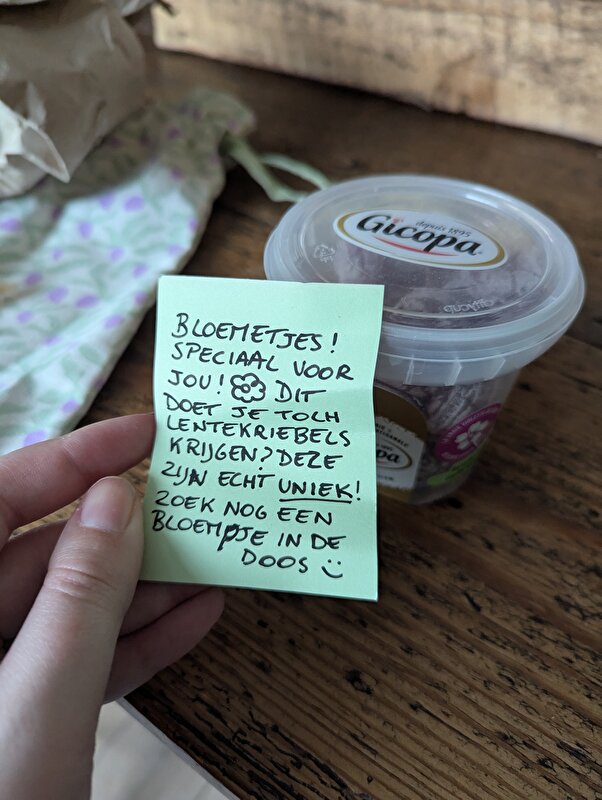 depuis 1895
Gicopa
BLOEMETJES!
SPECIAAL VOOR
JOU! DIT
DOET JE TOCH
LENTEKRIEBELS
KRIJGEN? DEZE
ZIJN ECHT UNIEK!
ZOEK NOG EEN
BLOEMPJE IN DE
DOOS :)